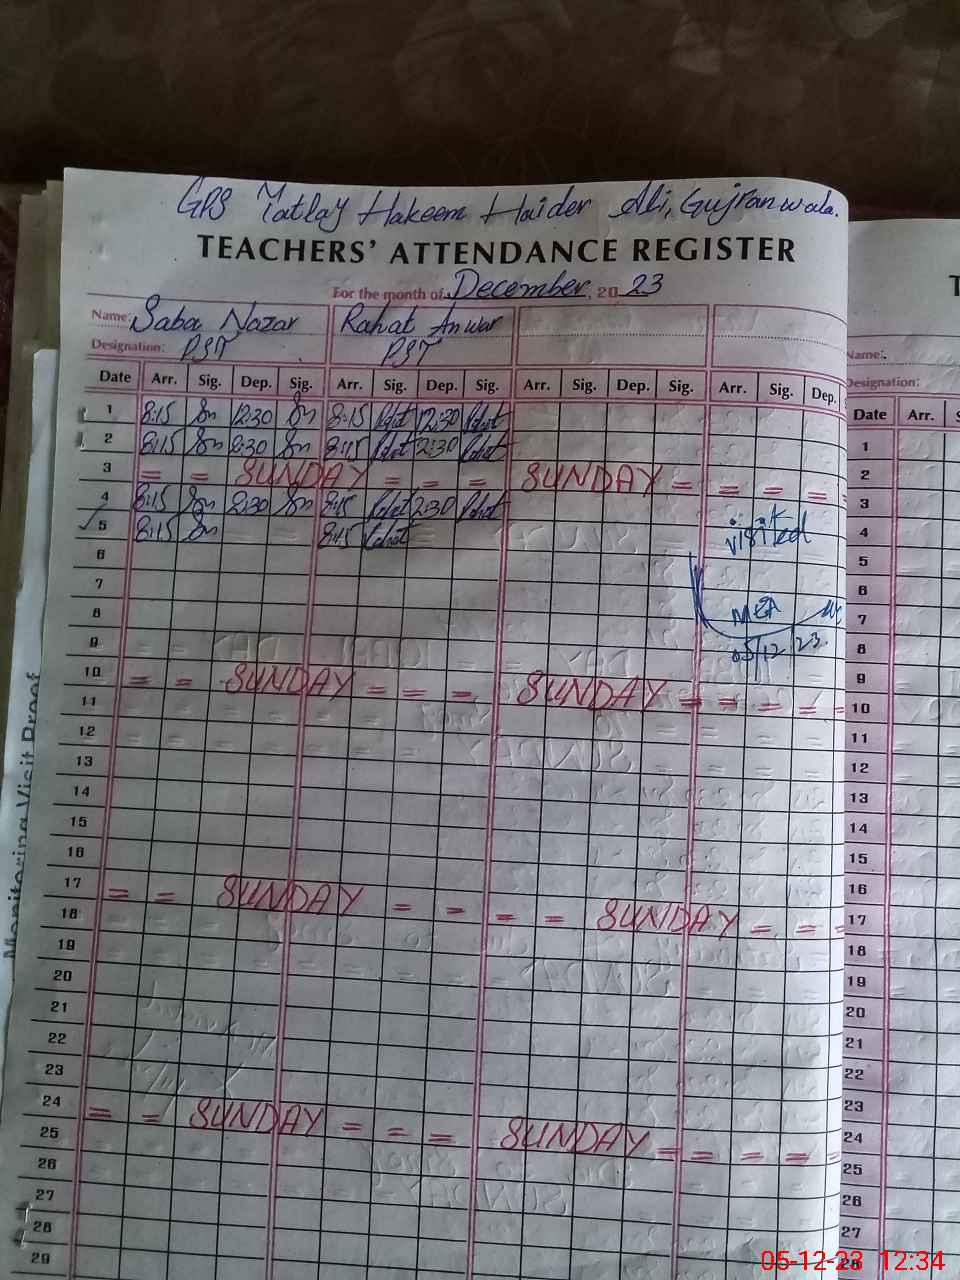 GPS Matlay Hakeem Haider Ali, Gujranwala.
TEACHERS' ATTENDANCE REGISTER
For the month of December, 2023
Name: Saba Nazar Rahat Anwar
Designation: PST PST
Date Arr. Sig. Dep. Sig. Arr. Sig. Dep. Sig. Arr. Sig. Dep. Sig. Arr. Sig. Dep.
1 8:15 12:30 8:15 12:30
2 8:15 2:30 8:15 2:30
3 = = SUNDAY = = = SUNDAY = = = = =
4 8:15 2:30 8:15 2:30
5 8:15 8:15
visited
6
7
8
MEA
05/12/23.
9
10 = = SUNDAY = = = SUNDAY = = = = =
11
12
13
14
15
16
17 = = SUNDAY = = = = SUNDAY = = =
18
19
20
21
22
23
24 = = SUNDAY = = = SUNDAY = = = = =
25
26
27
28
29
Name:
Designation:
Date Arr.
1
2
3
4
5
6
7
8
9
10
11
12
13
14
15
16
17
18
19
20
21
22
23
24
25
26
27
28
Monitoring Visit Proof
05-12-23 12:34